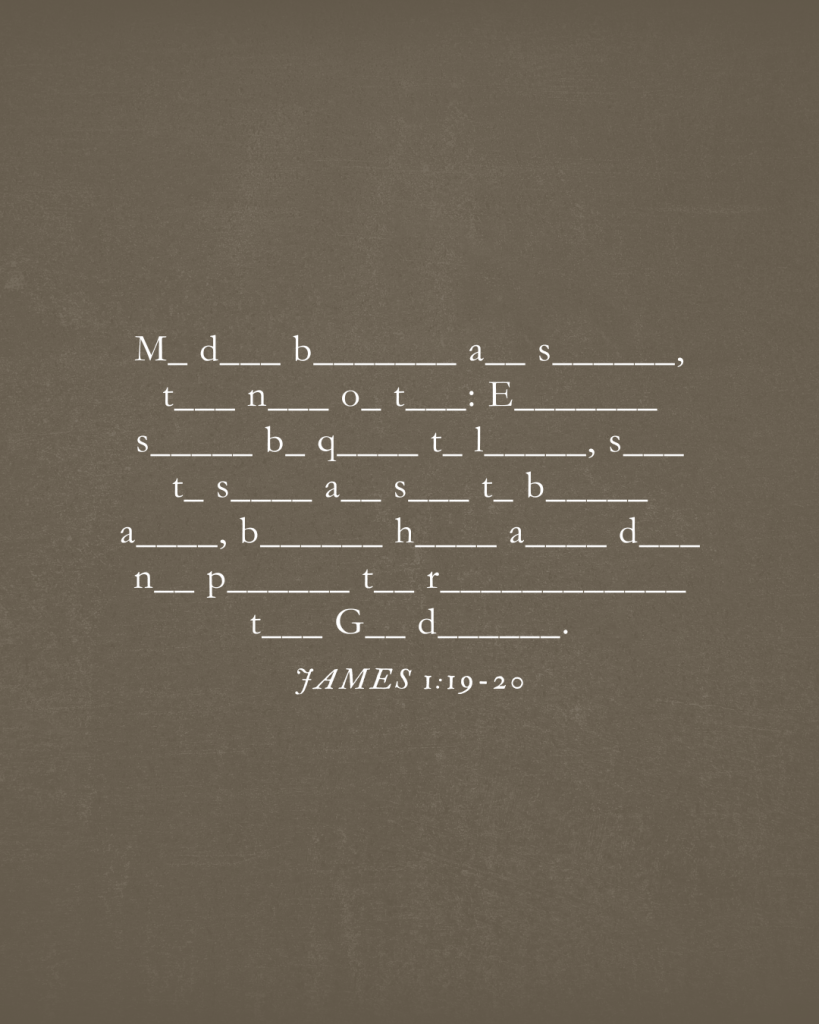 M_ d___ b_______ a__ s______,
t___ n___ o_ t___: E_______
s_____ b_ q____ t_ l_____, s___
t_ s____ a__ s___ t_ b_____
a____, b______ h____ a____ d___
n__ p______ t__ r____________
t___ G__ d______.
JAMES 1:19-20